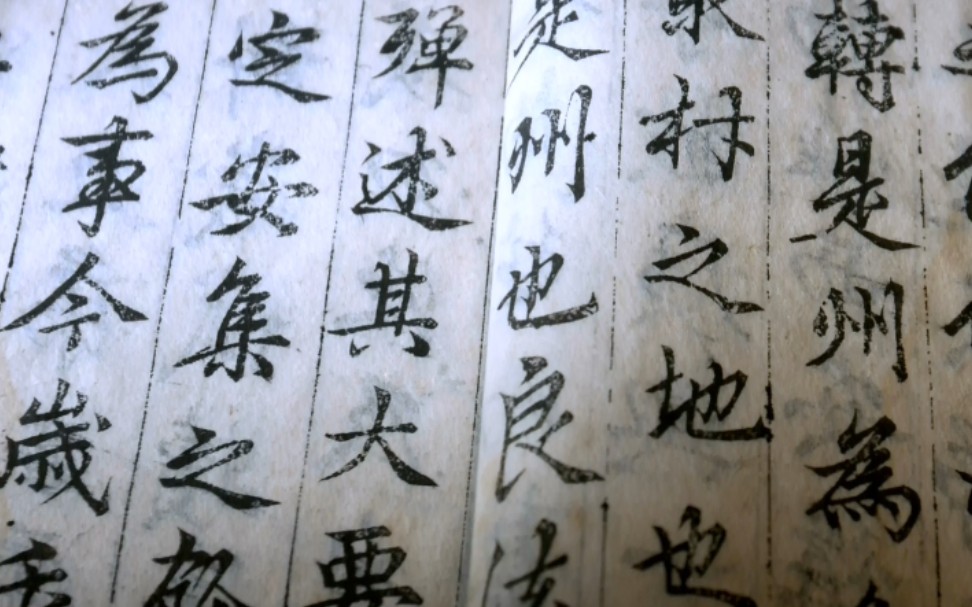 轉是州為
村之地也
是州也良法
彈述其大要
定安集之
為事今歲